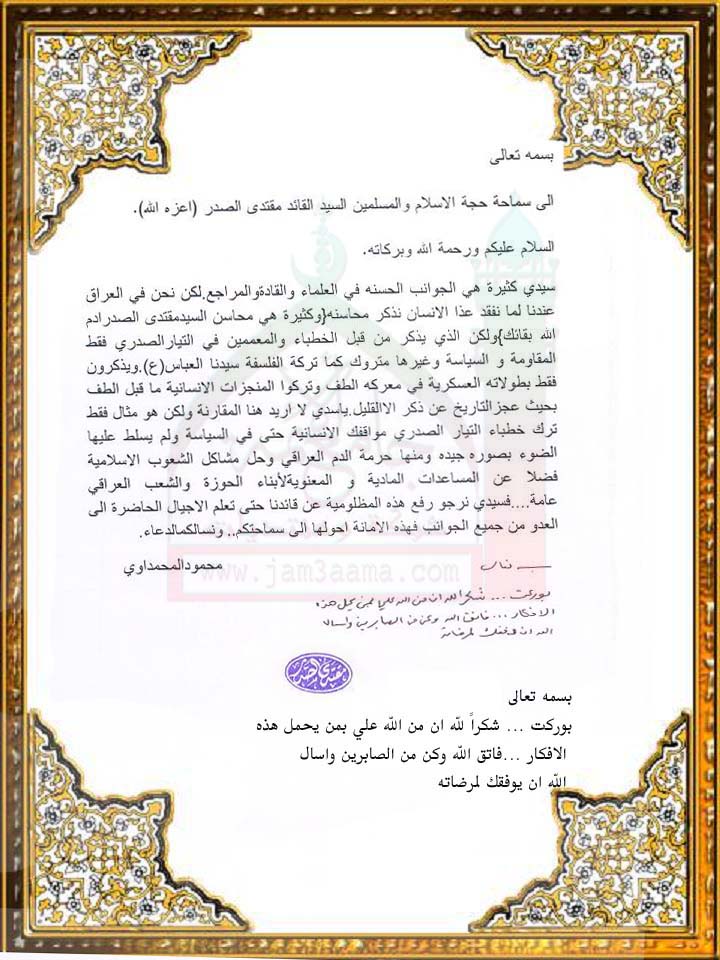 بسمه تعالى
الى سماحة حجة الاسلام والمسلمين السيد القائد مقتدى الصدر (اعزه الله).
السلام عليكم ورحمة الله وبركاته.
سيدي كثيرة هي الجوانب الحسنه في العلماء والقادةوالمراجع.لكن نحن في العراق
عندنا لما نفقد عذا الانسان نذكر محاسنه{وكثيرة هي محاسن السيدمقتدى الصدرادم
الله بقائك}ولكن الذي يذكر من قبل الخطباء والمعممين في التيارالصدري فقط
المقاومة و السياسة وغيرها متروك كما تركة الفلسفة سيدنا العباس(ع).ويذكرون
فقط بطولاته العسكرية في معركه الطف وتركوا المنجزات الانسانية ما قبل الطف
بحيث عجزالتاريخ عن ذكر الاالقليل.ياسدي لا اريد هنا المقارنة ولكن هو مثال فقط
ترك خطباء التيار الصدري مواقفك الانسانية حتى في السياسة ولم يسلط عليها
الضوء بصوره جيده ومنها حرمة الدم العراقي وحل مشاكل الشعوب الاسلامية
فضلا عن المساعدات المادية و المعنويةلأبناء الحوزة والشعب العراقي
عامة....فسيدي نرجو رفع هذه المظلومية عن قائدنا حتى تعلم الاجيال الحاضرة الى
العدو من جميع الجوانب فهذه الامانة احولها الى سماحتكم.. ونسالكمالدعاء.
محمودالمحمداوي
www.jam3aama.com
بسمه تعالى
بوركت ... شكرا لله ان من الله علي بمن يحمل هذه
الافكار ... فاتق الله وكن من الصابرين واسال
الله ان يوفقك لمرضاته
مقتدى الصدر
بسمه تعالى
بوركت ... شكراً لله ان من الله علي بمن يحمل هذه
الافكار ...فاتق الله وكن من الصابرين واسال
الله ان يوفقك لمرضاته